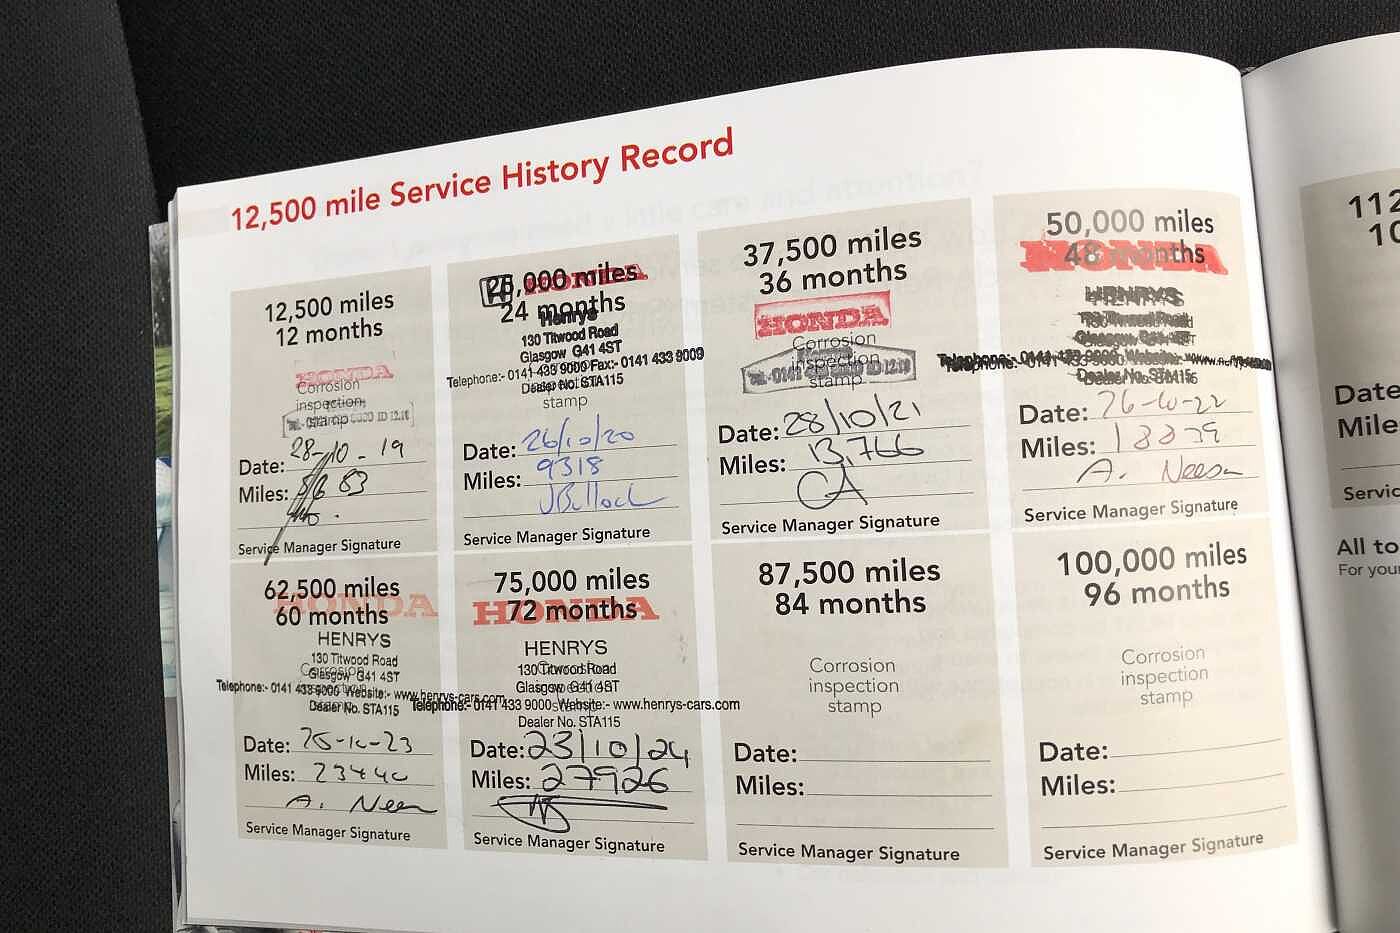 12,500 mile Service History Record
12,500 miles
12 months
HONDA
Corrosion
inspection
stamp
Date: 28-10-19
Miles: 83
Service Manager Signature
25,000 miles
24 months
HONDA
Henrys
130 Titwood Road
Glasgow G41 4ST
Telephone:- 0141 433 9000 Fax:- 0141 433 9009
Dealer No. STA115
stamp
Date: 26/10/20
Miles: 9318
JBulloch
Service Manager Signature
37,500 miles
36 months
HONDA
Corrosion
inspection
stamp
Date: 28/10/21
Miles: 13,766
CA
Service Manager Signature
50,000 miles
48 months
HONDA
HENRYS
130 Titwood Road
Telephone:- 0141 433 9000 Website:-
Dealer No.
Date: 26-10-22
Miles: 18839
A. Neeson
Service Manager Signature
62,500 miles
60 months
HONDA
HENRYS
130 Titwood Road
Glasgow G41 4ST
Telephone:- 0141 433 9000 Website:- www.henrys-cars.com
Dealer No. STA115
Date: 25-10-23
Miles: 23440
A. Neeson
Service Manager Signature
75,000 miles
72 months
HONDA
HENRYS
130 Titwood Road
Glasgow G41 4ST
Telephone:- 0141 433 9000 Website:- www.henrys-cars.com
Dealer No. STA115
Date: 23/10/24
Miles: 27926
Service Manager Signature
87,500 miles
84 months
Corrosion
inspection
stamp
Date:
Miles:
Service Manager Signature
100,000 miles
96 months
Corrosion
inspection
stamp
Date:
Miles:
Service Manager Signature
112
10
Date
Mile
Servic
All to
For your